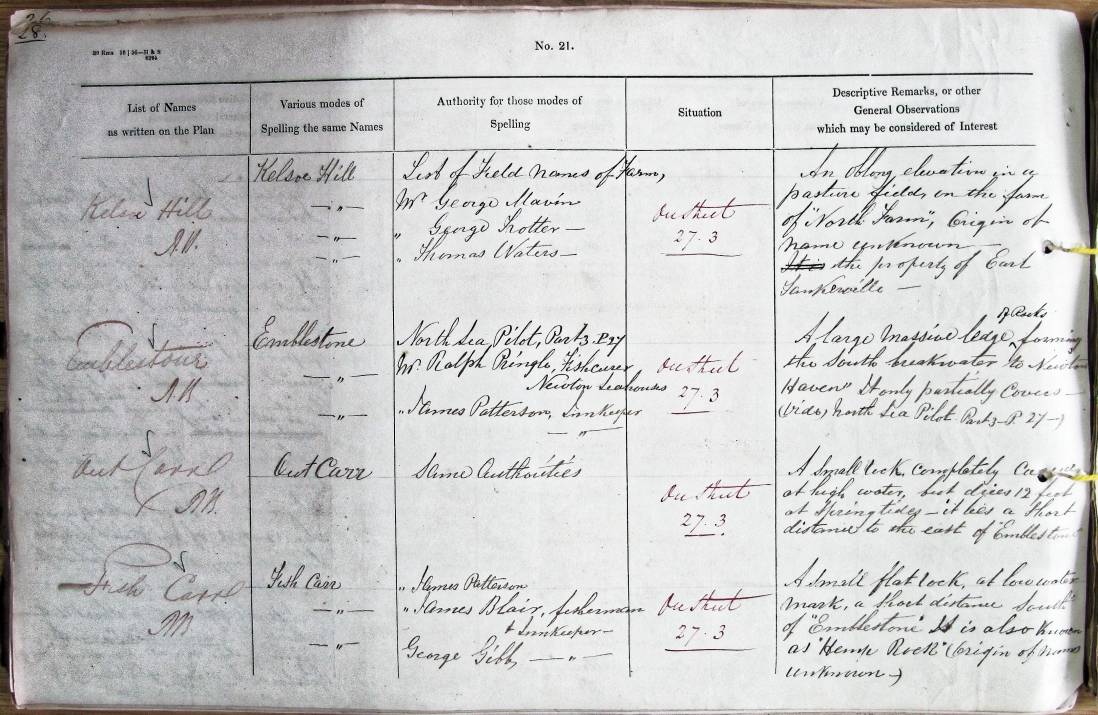 26
28.
No. 21.
List of Names
as written on the Plan
Various modes of
Spelling the same Names
Authority for those modes of
Spelling
Situation
Descriptive Remarks, or other
General Observations
which may be considered of Interest
Kelsoe Hill
List of Field Names of Farm,
An Oblong elevation in a
Hill
— „ —
Mr. George Mavin
On Sheet
pasture field, on the farm
— „ —
„ George Trotter —
27.3
of "North Farm", Origin of
— „ —
„ Thomas Waters —
name unknown —
It is the property of East
Tankerville —
Emblestone
Emblestone
North Sea Pilot, Part 3. P. 27
A large massive ledge of Rocks, forming
— „ —
Mr. Ralph Pringle, Fishcurer
Newton Seahouses
On Sheet
27.3
the South breakwater to Newton
Haven" It only partially Covers —
— „ —
„ James Patterson, Innkeeper
— „ —
(Vide, North Sea Pilot Part 3 — P. 27 —)
Out Carr
Out Carr
Same Authorities
On Sheet
27.3
A small rock, completely
at high water, but dries 12 feet
at Springtides — it lies a Short
distance to the east of "Emblestone"
Fish Carr
Fish Carr
„ James Patterson
A small flat rock, at low water
— „ —
„ James Blair, fisherman
& Innkeeper —
On Sheet
27.3
mark, a short distance South
of "Emblestone" It is also Known
— „ —
George Gibb, — „ —
as "Hemp Rock" (Origin of names
unknown —)